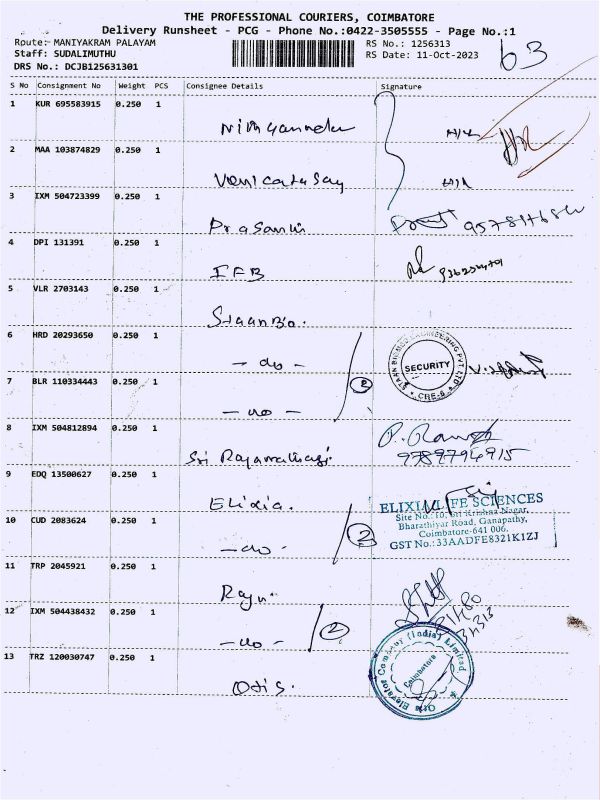 THE PROFESSIONAL COURIERS, COIMBATORE
Delivery Runsheet - PCG - Phone No.:0422-3505555 - Page No.:1
Route: MANIYAKRAM PALAYAM
RS No.: 1256313
Staff: SUDALIMUTHU
RS Date: 11-Oct-2023
DRS No.: DCJB125631301
63
S No Consignment No Weight PCS Consignee Details Signature
1 KUR 695583915 0.250 1
2 MAA 103874829 0.250 1
3 IXM 504723399 0.250 1
Prasanth
4 DPI 131391 0.250 1
IFB
5 VLR 2703143 0.250 1
StaanBio.
6 HRD 20293650 0.250 1
- do -
7 BLR 110334443 0.250 1
- do -
2
STAAN BIOMED ENGINEERING PVT LTD
SECURITY
8 IXM 504812894 0.250 1
Sri
9789794915
9 EDQ 13500627 0.250 1
Elixia.
10 CUD 2083624 0.250 1
- do -
2
ELIXIA LIFE SCIENCES
Site No.:10, Sri Krishna Nagar,
Bharathiyar Road, Ganapathy,
Coimbatore-641 006.
GST No.:33AADFE8321K1ZJ
11 TRP 2045921 0.250 1
12 IXM 504438432 0.250 1
- do -
2
13 TRZ 120030747 0.250 1
Otis.
Otis Elevator Company (India) Limited
Coimbatore